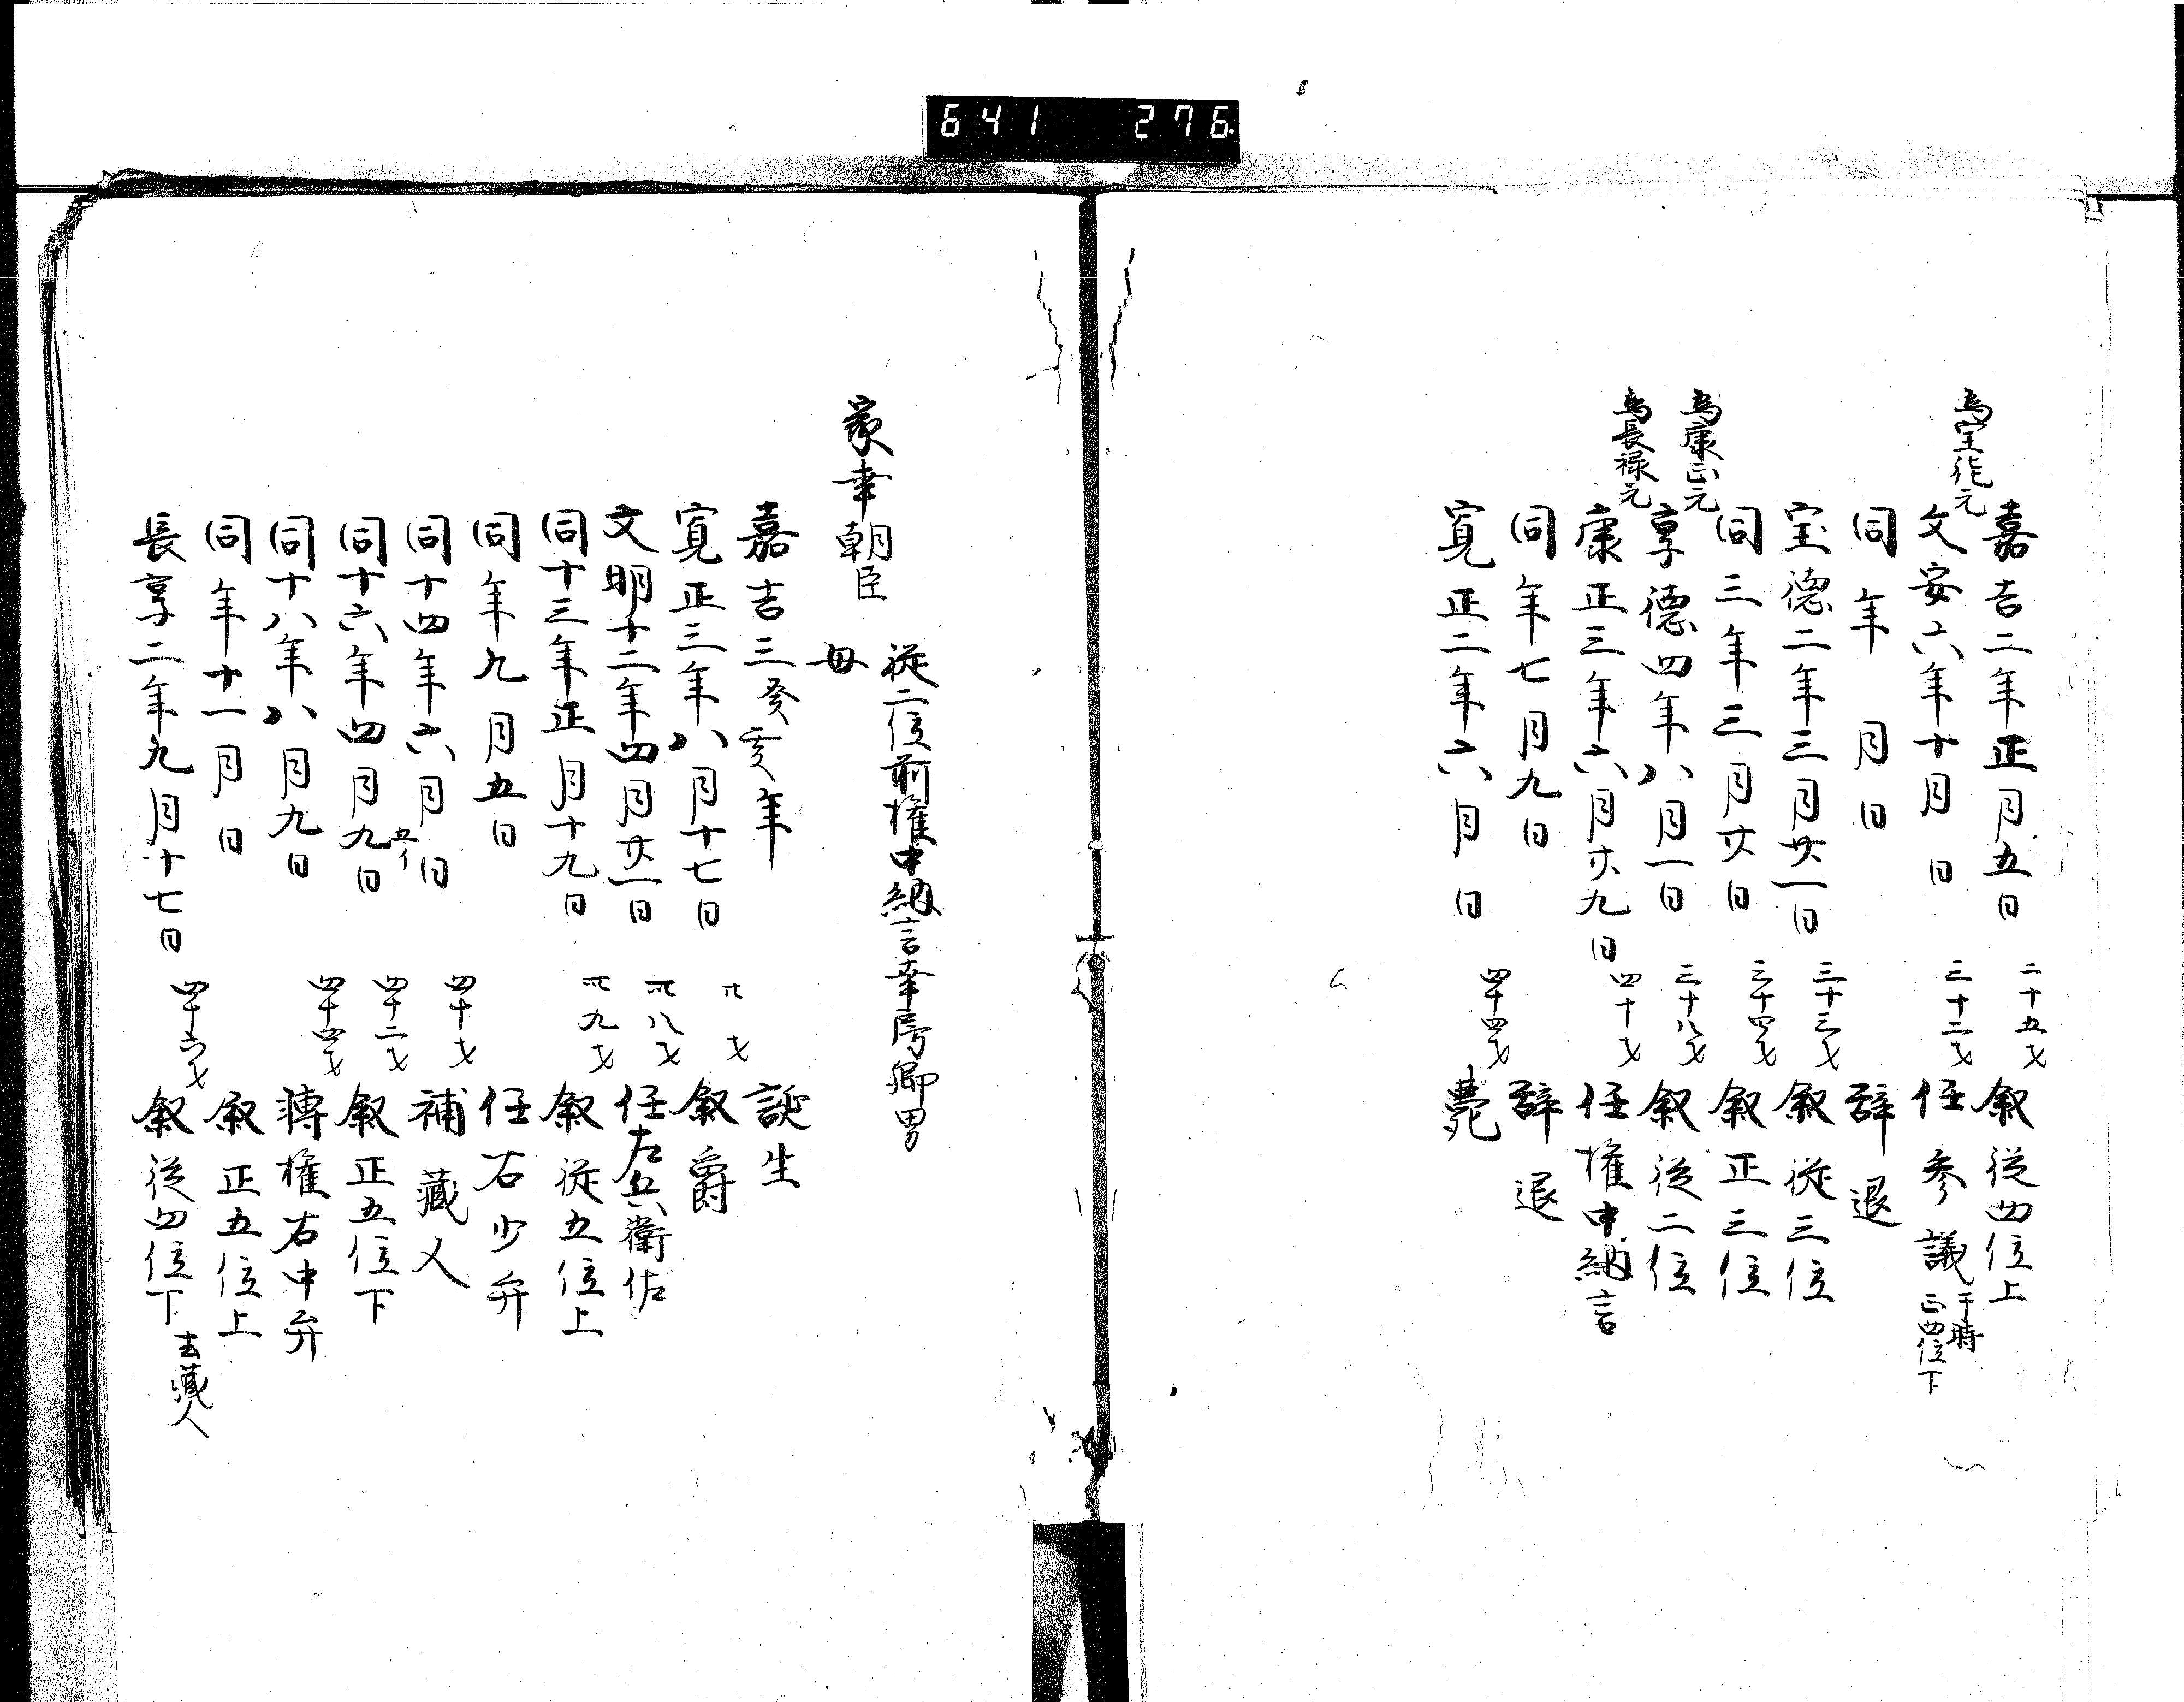 641 276
嘉吉二年正月五日 二十五才 叙従四位上
為宝徳元
文安六年十月 日 三十二才 任参議 于時正四位下
同年 月 日 辞退
宝徳二年三月廿一日 三十三才 叙従三位
同三年三月廿日 三十四才 叙正三位
為康正元
享徳四年八月一日 三十八才 叙従二位
為長禄元
康正三年六月廿九日 四十才 任権中納言
同年七月九日 辞退
寛正二年六月 日 四十四才 薨
家幸朝臣
従二位前権中納言幸房卿男
母
嘉吉三癸亥年 誕生
寛正三年八月十七日 廿才 叙爵
文明十二年四月廿一日 卅八才 任左兵衛佐
同十三年正月十九日 卅九才 叙従五位上
同年九月五日 任右少弁
同十四年六月 日 四十才 補蔵人
同十六年四月九日 四十二才 叙正五位下
五イ
同十八年八月九日 四十四才 転権右中弁
同年十一月 日 叙正五位上
長享二年九月十七日 四十六才 叙従四位下 去蔵人